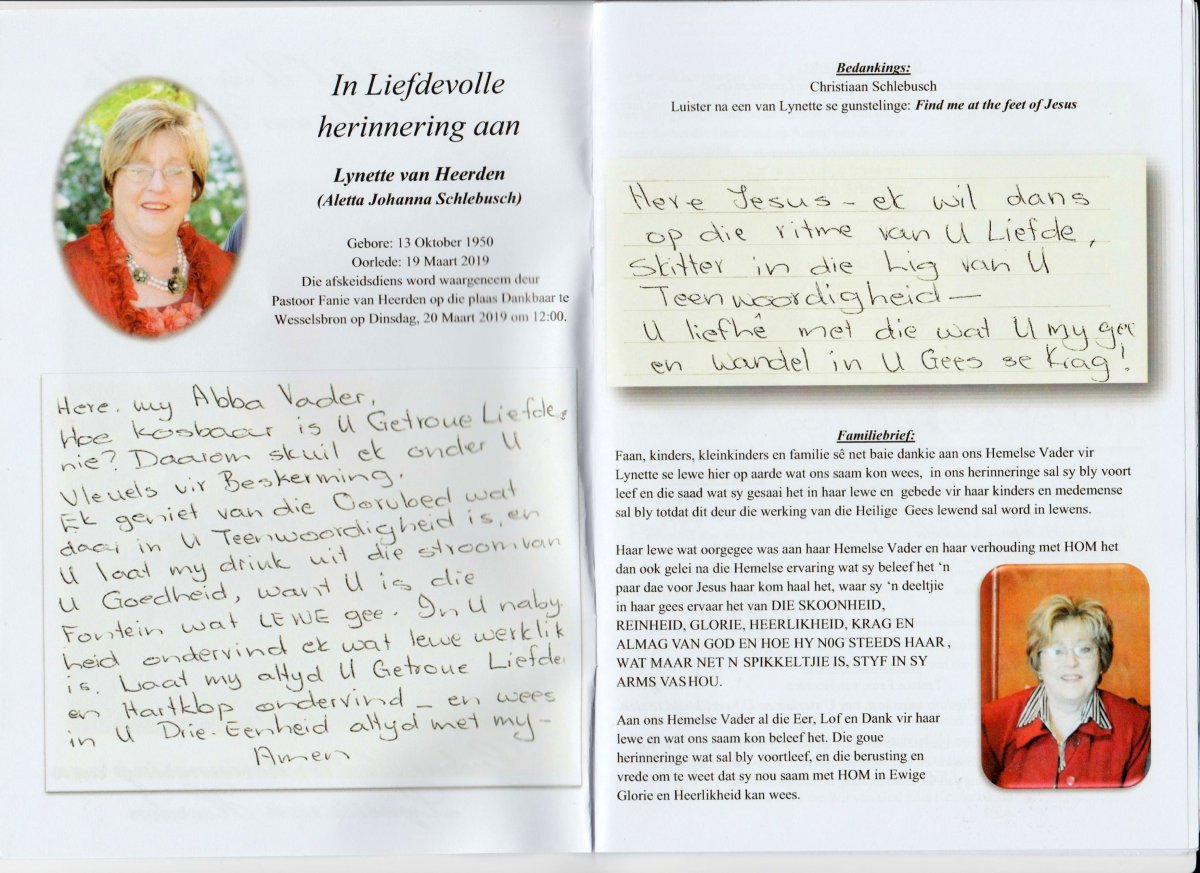 In Liefdevolle
herinnering aan
Lynette van Heerden
(Aletta Johanna Schlebusch)
Gebore: 13 Oktober 1950
Oorlede: 19 Maart 2019
Die afskeidsdiens word waargeneem deur
Pastoor Fanie van Heerden op die plaas Dankbaar te
Wesselsbron op Dinsdag, 20 Maart 2019 om 12:00.
Here. my Abba Vader,
Hoe kosbaar is U Getroue Liefde
nie? Daarom skuil ek onder U
Vleuels vir Beskerming.
Ek geniet van die Oorvloed wat
daar in U Teenwoordigheid is, en
U laat my drink uit die stroom van
U Goedheid, want U is die
Fontein wat LEWE gee. In U naby-
heid ondervind ek wat lewe werklik
is. Laat my altyd U Getroue Liefde
en Hartklop ondervind – en wees
in U Drie-Eenheid altyd met my –
Amen
Bedankings:
Christiaan Schlebusch
Luister na een van Lynette se gunstelinge: Find me at the feet of Jesus
Here Jesus – ek wil dans
op die ritme van U Liefde,
Skitter in die Lig van U
Teenwoordigheid –
U liefhê met die wat U my gee
en wandel in U Gees se Krag!
Familiebrief:
Faan, kinders, kleinkinders en familie sê net baie dankie aan ons Hemelse Vader vir
Lynette se lewe hier op aarde wat ons saam kon wees, in ons herinneringe sal sy bly voort
leef en die saad wat sy gesaai het in haar lewe en gebede vir haar kinders en medemense
sal bly totdat dit deur die werking van die Heilige Gees lewend sal word in lewens.
Haar lewe wat oorgegee was aan haar Hemelse Vader en haar verhouding met HOM het
dan ook gelei na die Hemelse ervaring wat sy beleef het ‘n
paar dae voor Jesus haar kom haal het, waar sy ‘n deeltjie
in haar gees ervaar het van DIE SKOONHEID,
REINHEID, GLORIE, HEERLIKHEID, KRAG EN
ALMAG VAN GOD EN HOE HY N0G STEEDS HAAR ,
WAT MAAR NET N SPIKKELTJIE IS, STYF IN SY
ARMS VASHOU.
Aan ons Hemelse Vader al die Eer, Lof en Dank vir haar
lewe en wat ons saam kon beleef het. Die goue
herinneringe wat sal bly voortleef, en die berusting en
vrede om te weet dat sy nou saam met HOM in Ewige
Glorie en Heerlikheid kan wees.